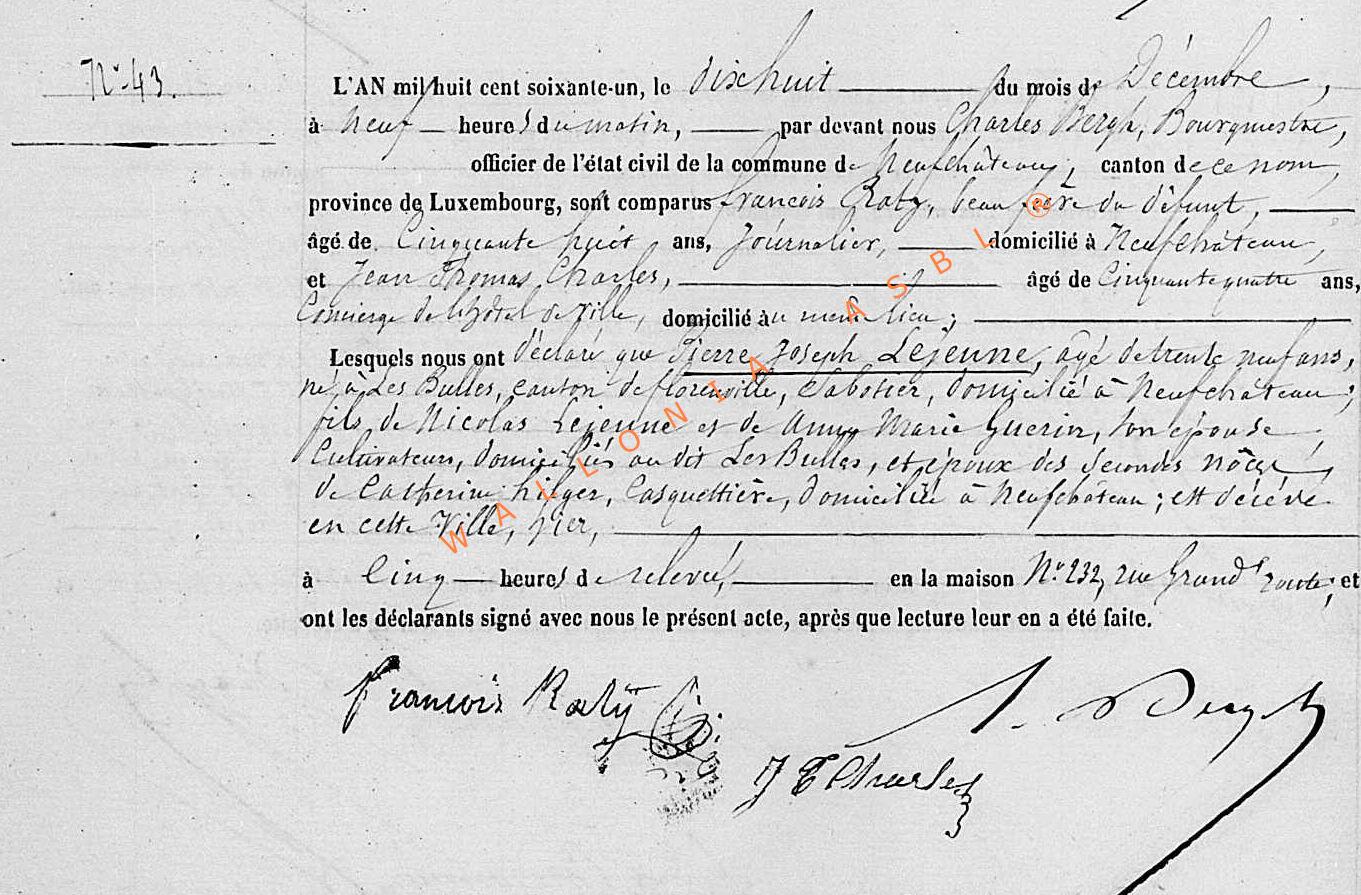 N° 43.
L'AN mil huit cent soixante-un, le dixhuit du mois de Décembre,
à neuf heures du matin, par devant nous Charles Bergh, Bourgmestre,
officier de l'état civil de la commune de Neufchâteau, canton de ce nom,
province de Luxembourg, sont comparus françois Raty, beau frère du défunt,
âgé de Cinquante huit ans, Journalier, domicilié à Neufchâteau,
et Jean Thomas Charles, âgé de Cinquante quatre ans,
Concierge de l'hôtel de Ville, domicilié au même lieu;
Lesquels nous ont déclaré que Pierre Joseph Lejeune, agé de trente neuf ans,
né à Les Bulles, canton de florenville, Sabotier, domicilié à Neufchâteau,
fils de Nicolas Lejeune et de Anne Marie Guerin, son épouse,
Cultivateurs, domiciliés au dit Les Bulles, et époux des secondes nôces
de Catherine hilger, Casquettière, domiciliée à Neufchâteau; est décédé
en cette Ville, hier,
à Cinq heures de relevée, en la maison N° 232, rue Grand route; et
ont les déclarants signé avec nous le présent acte, après que lecture leur en a été faite.
françois Raty
Bergh
J T Charles
WALLONIA ASBL ®